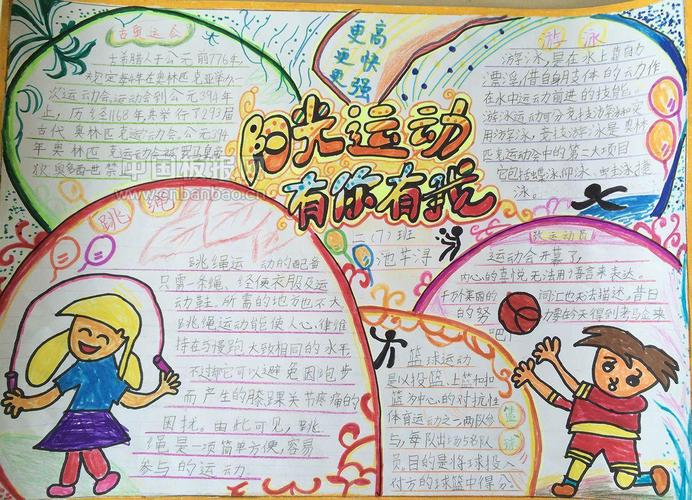 古奥运会
古希腊人于公元前776年
规定每4年在奥林匹克举办一
次运动会.运动会到公元394年
止,历经1168年,共举行了293届
古代奥林匹克运动会.公元394
年奥林匹克运动会被罗马皇帝
更高
更快
更强
阳光运动
有你有我
二(7)班
游泳
游泳,是在水上靠自
漂浮,借自身肢体的动作
在水中运动前进的技能。
游泳运动可分竞技游泳和实
用游泳。竞技游泳是奥林
匹克运动会中的第二大项目
它包括蝶泳仰泳
泳。
中国板报网
www.cnbanbao.cn
跳绳
跳绳运动的配备
只需一条绳、轻便衣服及运
动鞋,所需的地方也不大
跳绳运动能使人心律维
持在与慢跑大致相同的水平
不过它可以避免因跑步
而产生的膝踝关节疼痛的
困扰。由此可见,跳
绳是一项简单方便,容易
参与的运动。
致运动员
运动会开幕了,
内心的喜悦无法用语言来表达。
千万美丽的词汇也无法描述,昔日
的努力要的今天得到
吧!
篮球
篮球运动
是以投篮、上篮和扣
篮为中心的对抗性
体育运动之一两队参
与,每队出场5名队
员。目的是将球投入
对方的球篮中得分